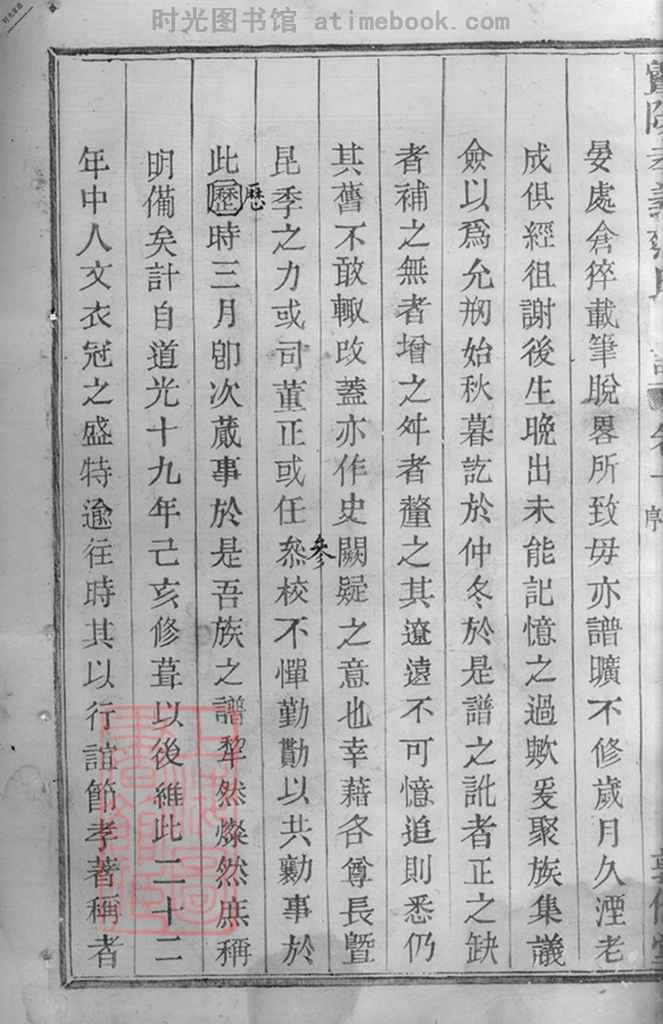 时光图书馆 atimebook.com
晏處倉猝載筆脫畧所致毋亦譜曠不修歲月久湮老
成俱經徂謝後生晚出未能記憶之過歟爰聚族集議
僉以爲允刱始秋暮訖於仲冬於是譜之訛者正之缺
者補之無者增之舛者釐之其遼遠不可憶追則悉仍
其舊不敢輙改蓋亦作史闕疑之意也幸藉各尊長曁
昆季之力或司董正或任叅校不憚勤勩以共勷事於
參
此歷時三月卽次蕆事於是吾族之譜犂然燦然庶稱
明備矣計自道光十九年己亥修葺以後維此二十二
年中人文衣冠之盛特逾往時其以行誼節孝著稱者